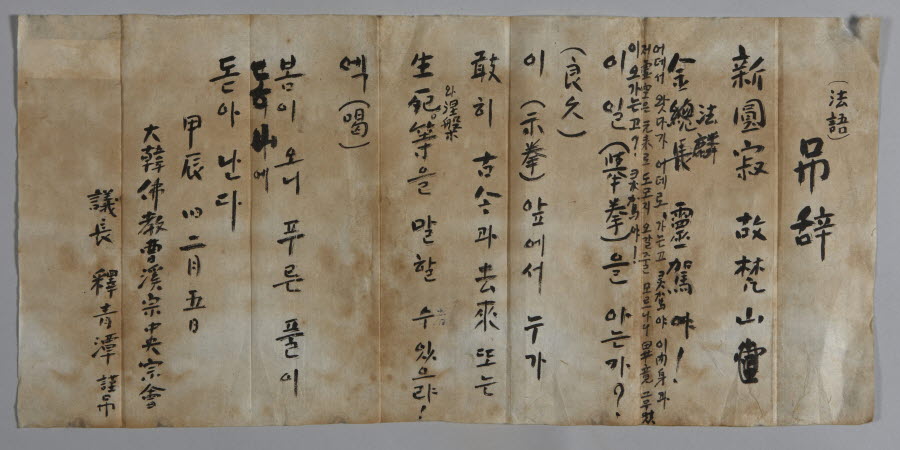 (法語)
吊辞
新圓寂 故梵山堂
金總長 靈駕야!
法麟
어데서 왓다가 어데로 가는고 靈駕야 이肉身과
저虛空은 元來로 도로지 오갈줄 모르나니 畢竟 그무엇
이 오가는고? 靈駕야!
이 일(竪拳)을 아는가?
(良久)
이 (示拳) 앞에서 누가
敢히 古今과 去來 또는
와涅槃
生死等을 말할 수 있으랴!
엑(喝)
봄이 오니 푸른 풀이
東山에
돋아 난다
甲辰 二月五日
大韓佛教曹溪宗中央宗會
議長 釋青潭 謹吊